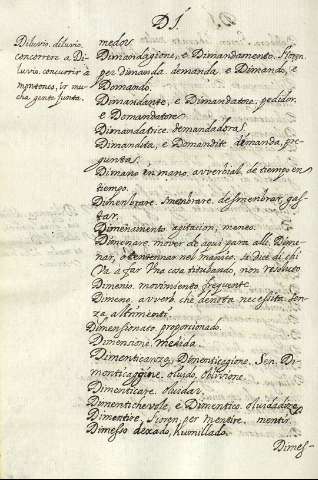 DI
Diluvio. diluvio.
concorrere a Di-
luvio. concurrir à
montones, ò mu-
cha gente junta.
medor
Dimandagione, e Dimandamento. Fioren.
per dimanda demanda, e Dimando, e
Domando.
Dimandante, e Dimandatore, pedidor.
e Domandatore
Dimandatrice demandadora.
Dimandita, e Domandite demanda, pre-
guntas.
Dimano in mano. avverbial. de tiempo en
tiempo.
Dimenbrare. smenbrare. desmenbrar, gas-
tar.
Dimenamento agitacion, meneo.
Dimenare. mover de aqui para alli. Dime-
nar, o tentennar nel manico, si dice di chi
Và a far Una cosa titubando, non resoluto
Dimenio. movimiento frequente
Dimeno, avverb. che denota necessità. sen-
za, altrimenti.
Dimensionato. proporcionado.
Dimensione. medida.
Dimenticanza, Dimenticagione. Sen. Di-
menticaggine. oluido, oblivione.
Dimenticare. oluidar.
Dimentichevole, e Dimentico. oluidadizo
Dimentire, Fioren. per mentire. mentir.
Dimesso dexado, humillado.
Dimes-